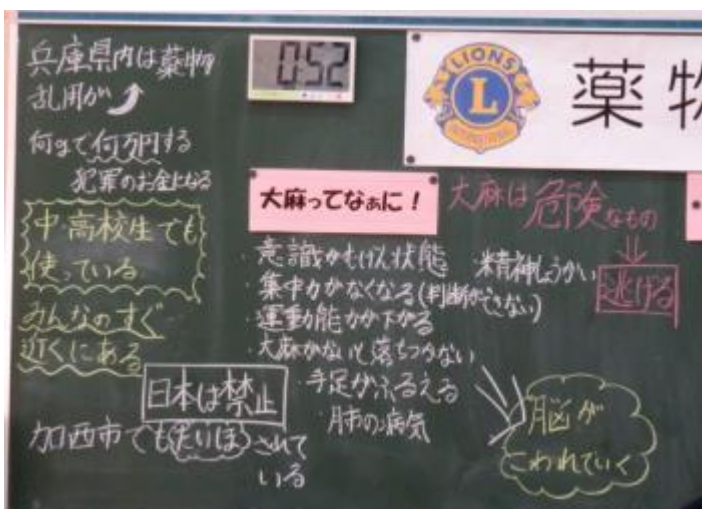 兵庫県内は薬物
乱用が
何gで何万円する
犯罪のお金になる
中・高校生でも
使っている
みんなのすぐ
近くにある
日本は禁止
加西市でもたいほされて
いる
0:52
LIONS
L
薬物
大麻ってなぁに！
・意識がもうろう状態
・集中力がなくなる(判断ができない)
・運動能力が下がる
・大麻がないと落ちつかない
・手足がふるえる
・肺の病気
・精神しょうがい
大麻は危険なもの
逃げる
脳が
こわれていく